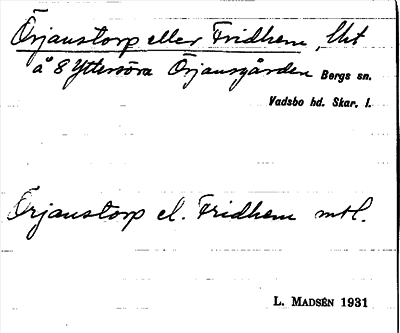 Örjanstorp eller Fridhem, lht
å 8 Yttersöra Örjansgården Bergs sn.
Vadsbo hd. Skar. l.
Örjanstorp el. Fridhem mtl.
L. MADSÉN 1931